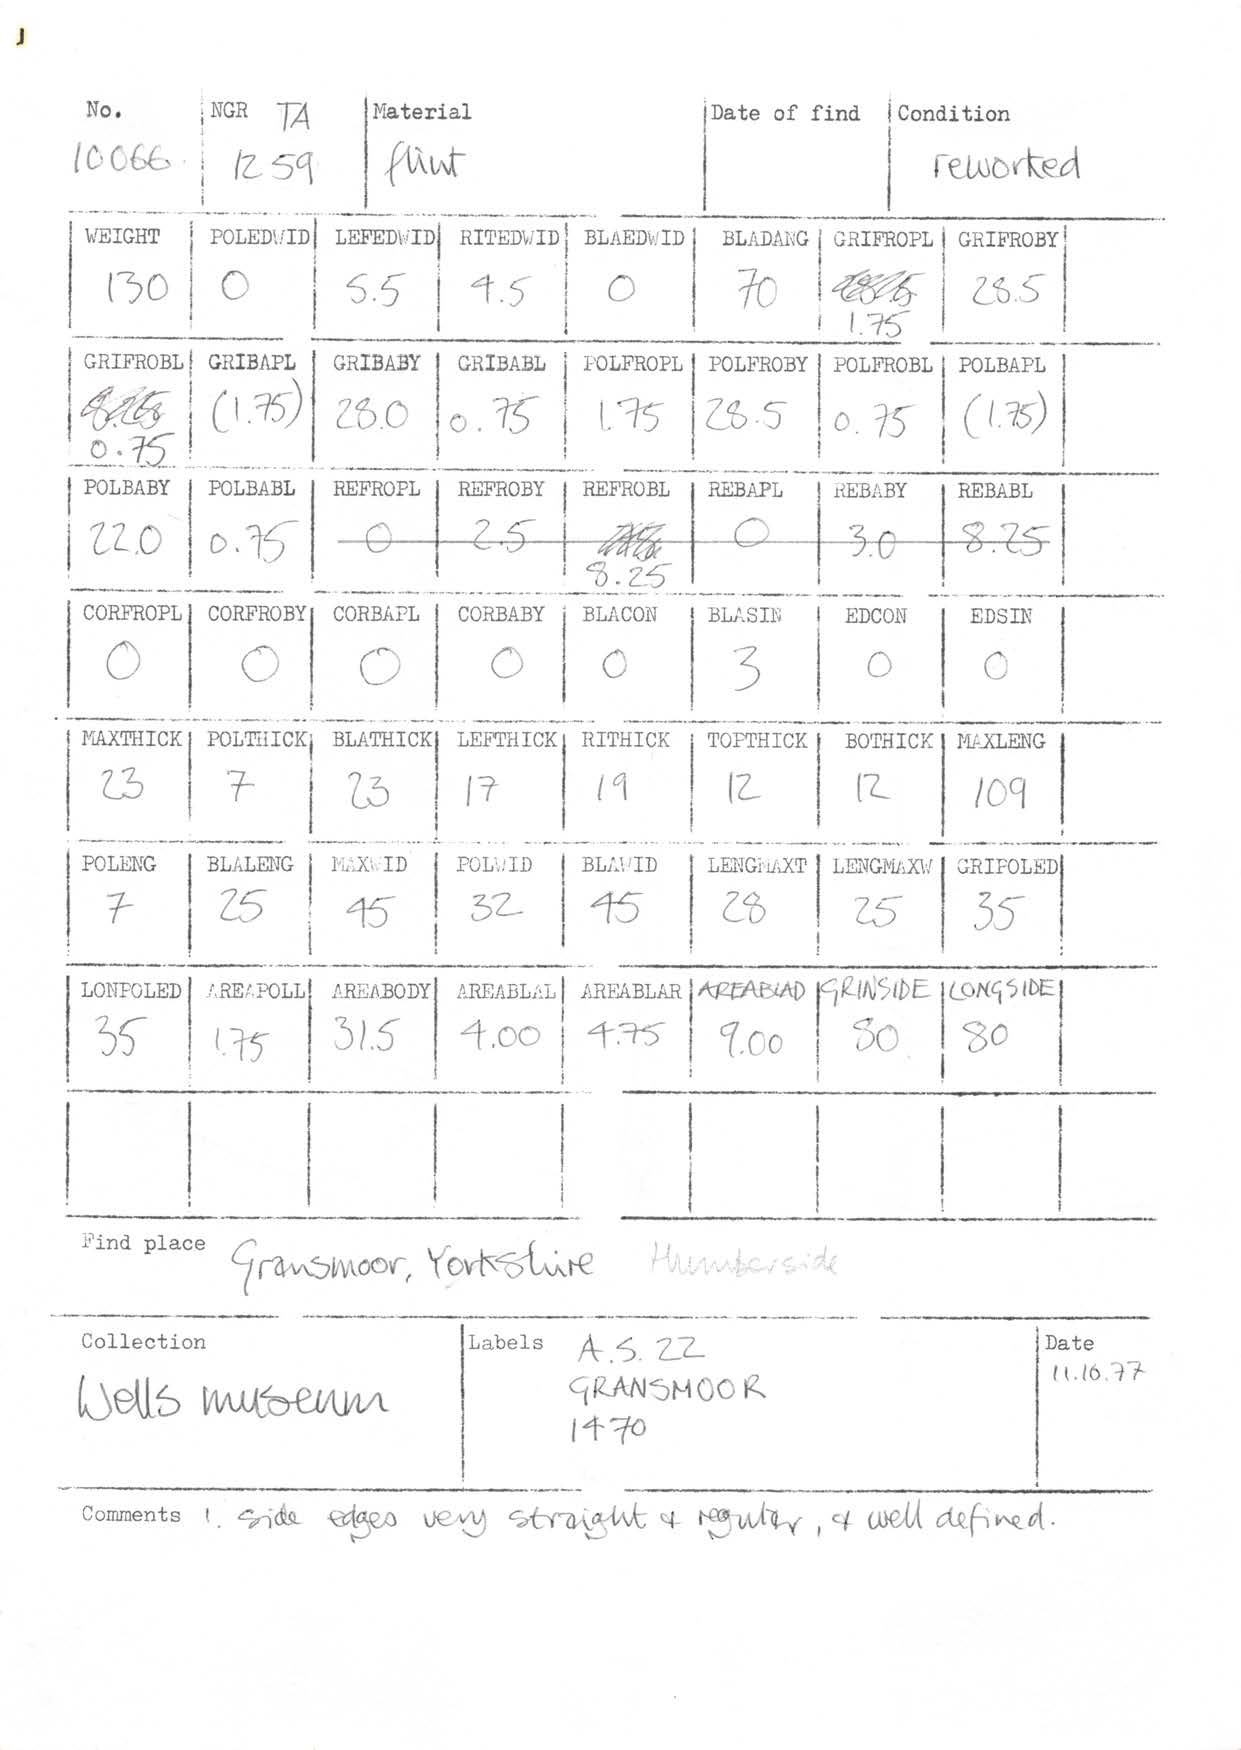 J
No. NGR TA Material Date of find Condition
10066. 1259 flint reworked
WEIGHT POLEDWID LEFEDWID RITEDWID BLAEDWID BLADANG GRIFROPL GRIFROBY
130 0 5.5 4.5 0 70 28.5
1.75
GRIFROBL GRIBAPL GRIBABY GRIBABL POLFROPL POLFROBY POLFROBL POLBAPL
(1.75) 28.0 0.75 1.75 28.5 0.75 (1.75)
0.75
POLBABY POLBABL REFROPL REFROBY REFROBL REBAPL REBABY REBABL
22.0 0.75 0 2.5 0 3.0 8.25
8.25
CORFROPL CORFROBY CORBAPL CORBABY BLACON BLASIN EDCON EDSIN
0 0 0 0 0 3 0 0
MAXTHICK POLTHICK BLATHICK LEFTHICK RITHICK TOPTHICK BOTHICK MAXLENG
23 7 23 17 19 12 12 109
POLENG BLALENG MAXWID POLWID BLAWID LENGMAXT LENGMAXW GRIPOLED
7 25 45 32 45 28 25 35
LONPOLED AREAPOLL AREABODY AREABLAL AREABLAR AREABLAD GRINSIDE LONGSIDE
35 1.75 31.5 4.00 4.75 9.00 80 80
Find place Gransmoor, Yorkshire Humberside
Collection Labels A.S. 22 Date
Wells museum GRANSMOOR 11.10.77
1470
Comments 1. side edges very straight & regular, & well defined.